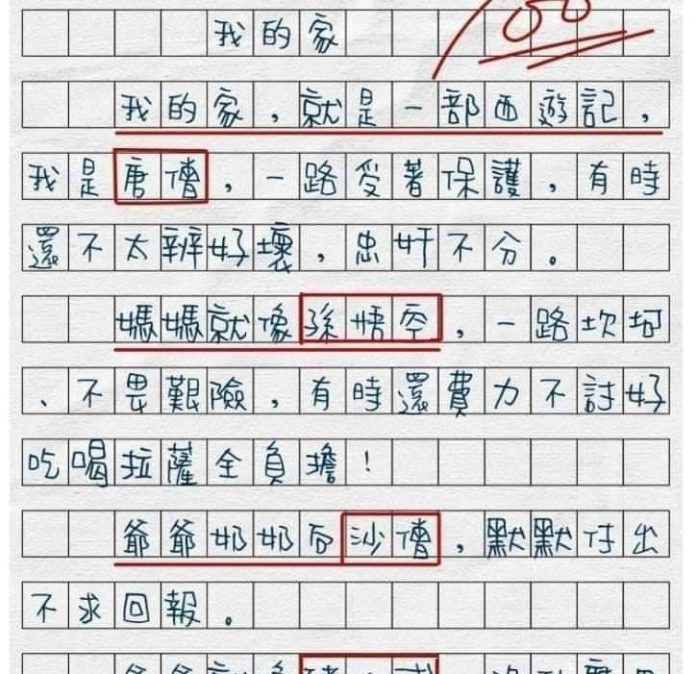 100
我的家
我的家,就是一部西遊記,
我是唐僧,一路受著保護,有時
還不太辨好壞,忠奸不分。
媽媽就像孫悟空,一路坎坷
、不畏艱險,有時還費力不討好
吃喝拉薩全負擔!
爺爺奶奶沙僧,默默付出
不求回報。